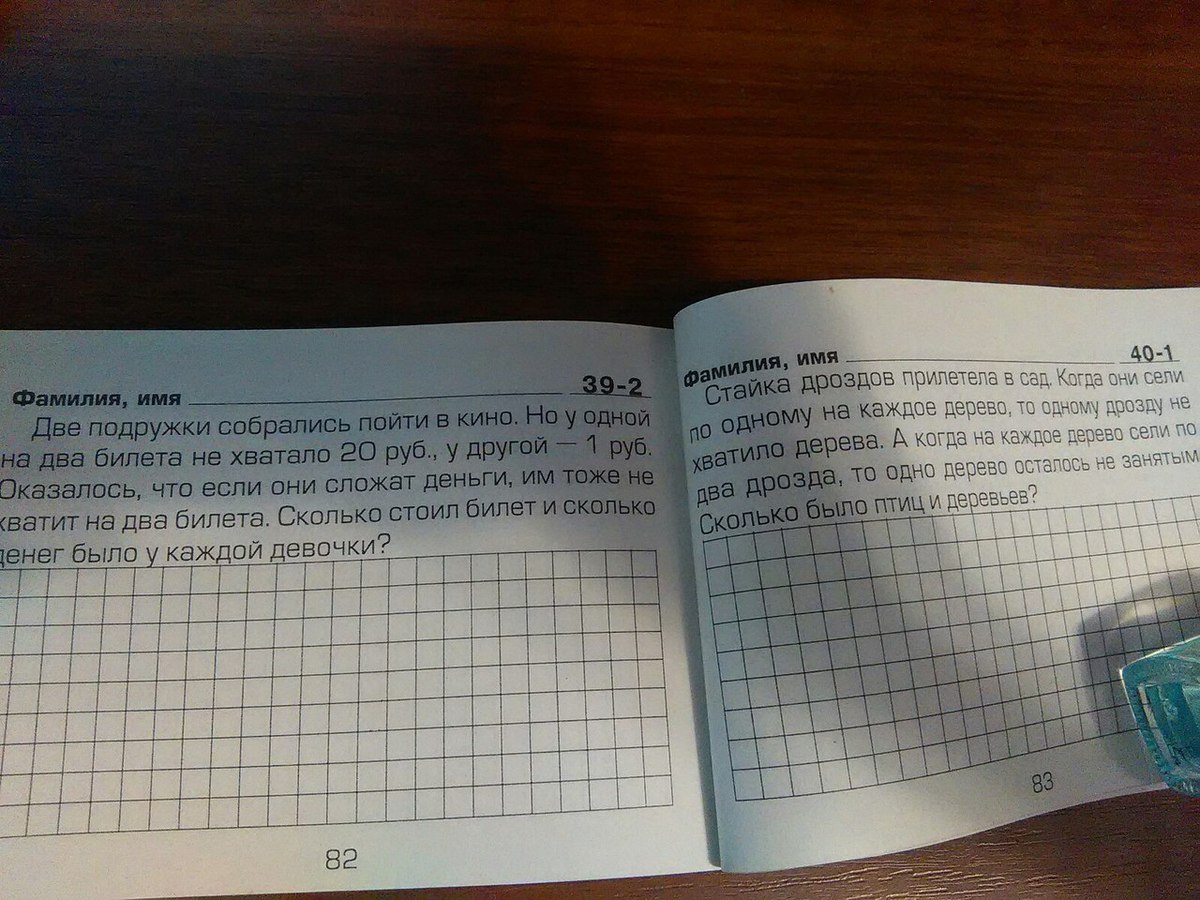 Фамилия, имя 39-2
Две подружки собрались пойти в кино. Но у одной
на два билета не хватало 20 руб., у другой — 1 руб.
Оказалось, что если они сложат деньги, им тоже не
хватит на два билета. Сколько стоил билет и сколько
денег было у каждой девочки?
82
Фамилия, имя 40-1
Стайка дроздов прилетела в сад. Когда они сели
по одному на каждое дерево, то одному дрозду не
хватило дерева. А когда на каждое дерево сели по
два дрозда, то одно дерево осталось не занятым
Сколько было птиц и деревьев?
83